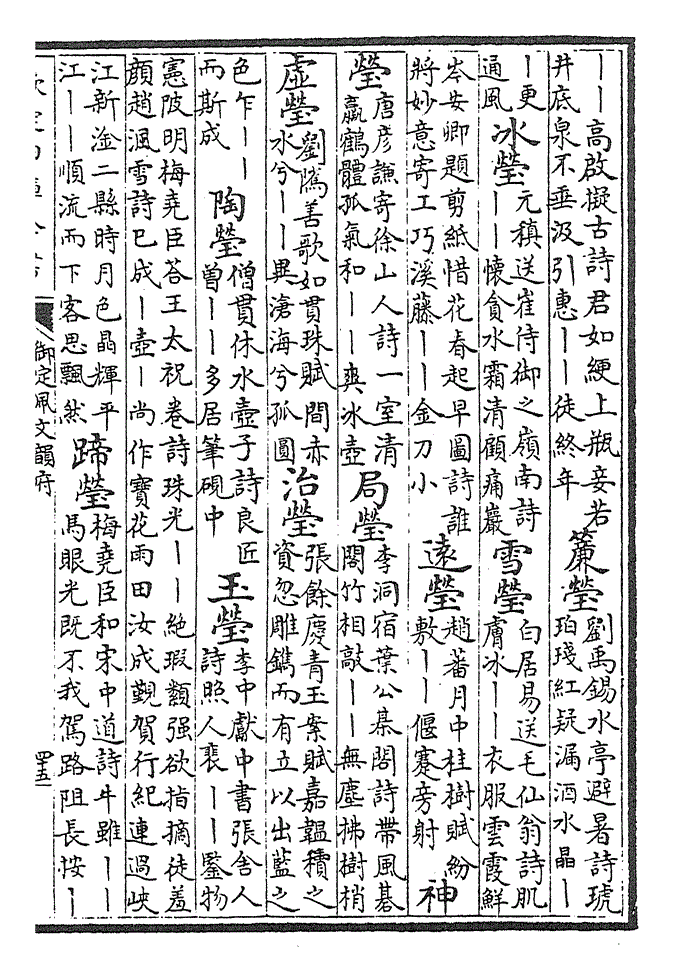 ｜｜高啟擬古詩君如綆上瓶妾若
井底泉不垂汲引惠｜｜徒終年
簾瑩
劉禹錫水亭避暑詩琥
珀琖紅疑漏酒水晶｜
｜更
通風
冰瑩
元稹送崔侍御之嶺南詩
｜｜懷貪水霜清顧痛巖
雪瑩
白居易送毛仙翁詩肌
膚冰｜｜衣服雲霞鮮
岑安卿題剪紙惜花春起早圖詩誰
將妙意寄工巧溪藤｜｜金刀小
遠瑩
趙蕃月中桂樹賦紛
敷｜｜偃蹇旁射
神
瑩
唐彥謙寄徐山人詩一室清
羸鶴體孤氣和｜｜爽冰壺
局瑩
李洞宿葉公棊閣詩帶風棊
閣竹相敲｜｜無塵拂樹梢
虛瑩
劉隲善歌如貫珠賦間赤
水兮｜｜異滄海兮孤圓
治瑩
張餘慶青玉案賦嘉韞櫝之
資忽雕鐫而有立以出藍之
色乍｜｜
而斯成
陶瑩
僧貫休水壺子詩良匠
曾｜｜多居筆硯中
玉瑩
李中獻中書張舍人
詩照人裴｜｜鑒物
憲陂明梅堯臣荅王太祝卷詩珠光｜｜絶瑕纇强欲指摘徒羞
顔趙漍雪詩已成｜壺｜尚作寶花雨田汝成覲賀行紀連過峽
江新淦二縣時月色晶輝平
江｜｜順流而下客思飄然
蹄瑩
梅堯臣和宋中道詩牛雖｜｜
馬眼光既不我駕路阻長按｜
御定佩文韻府
四五